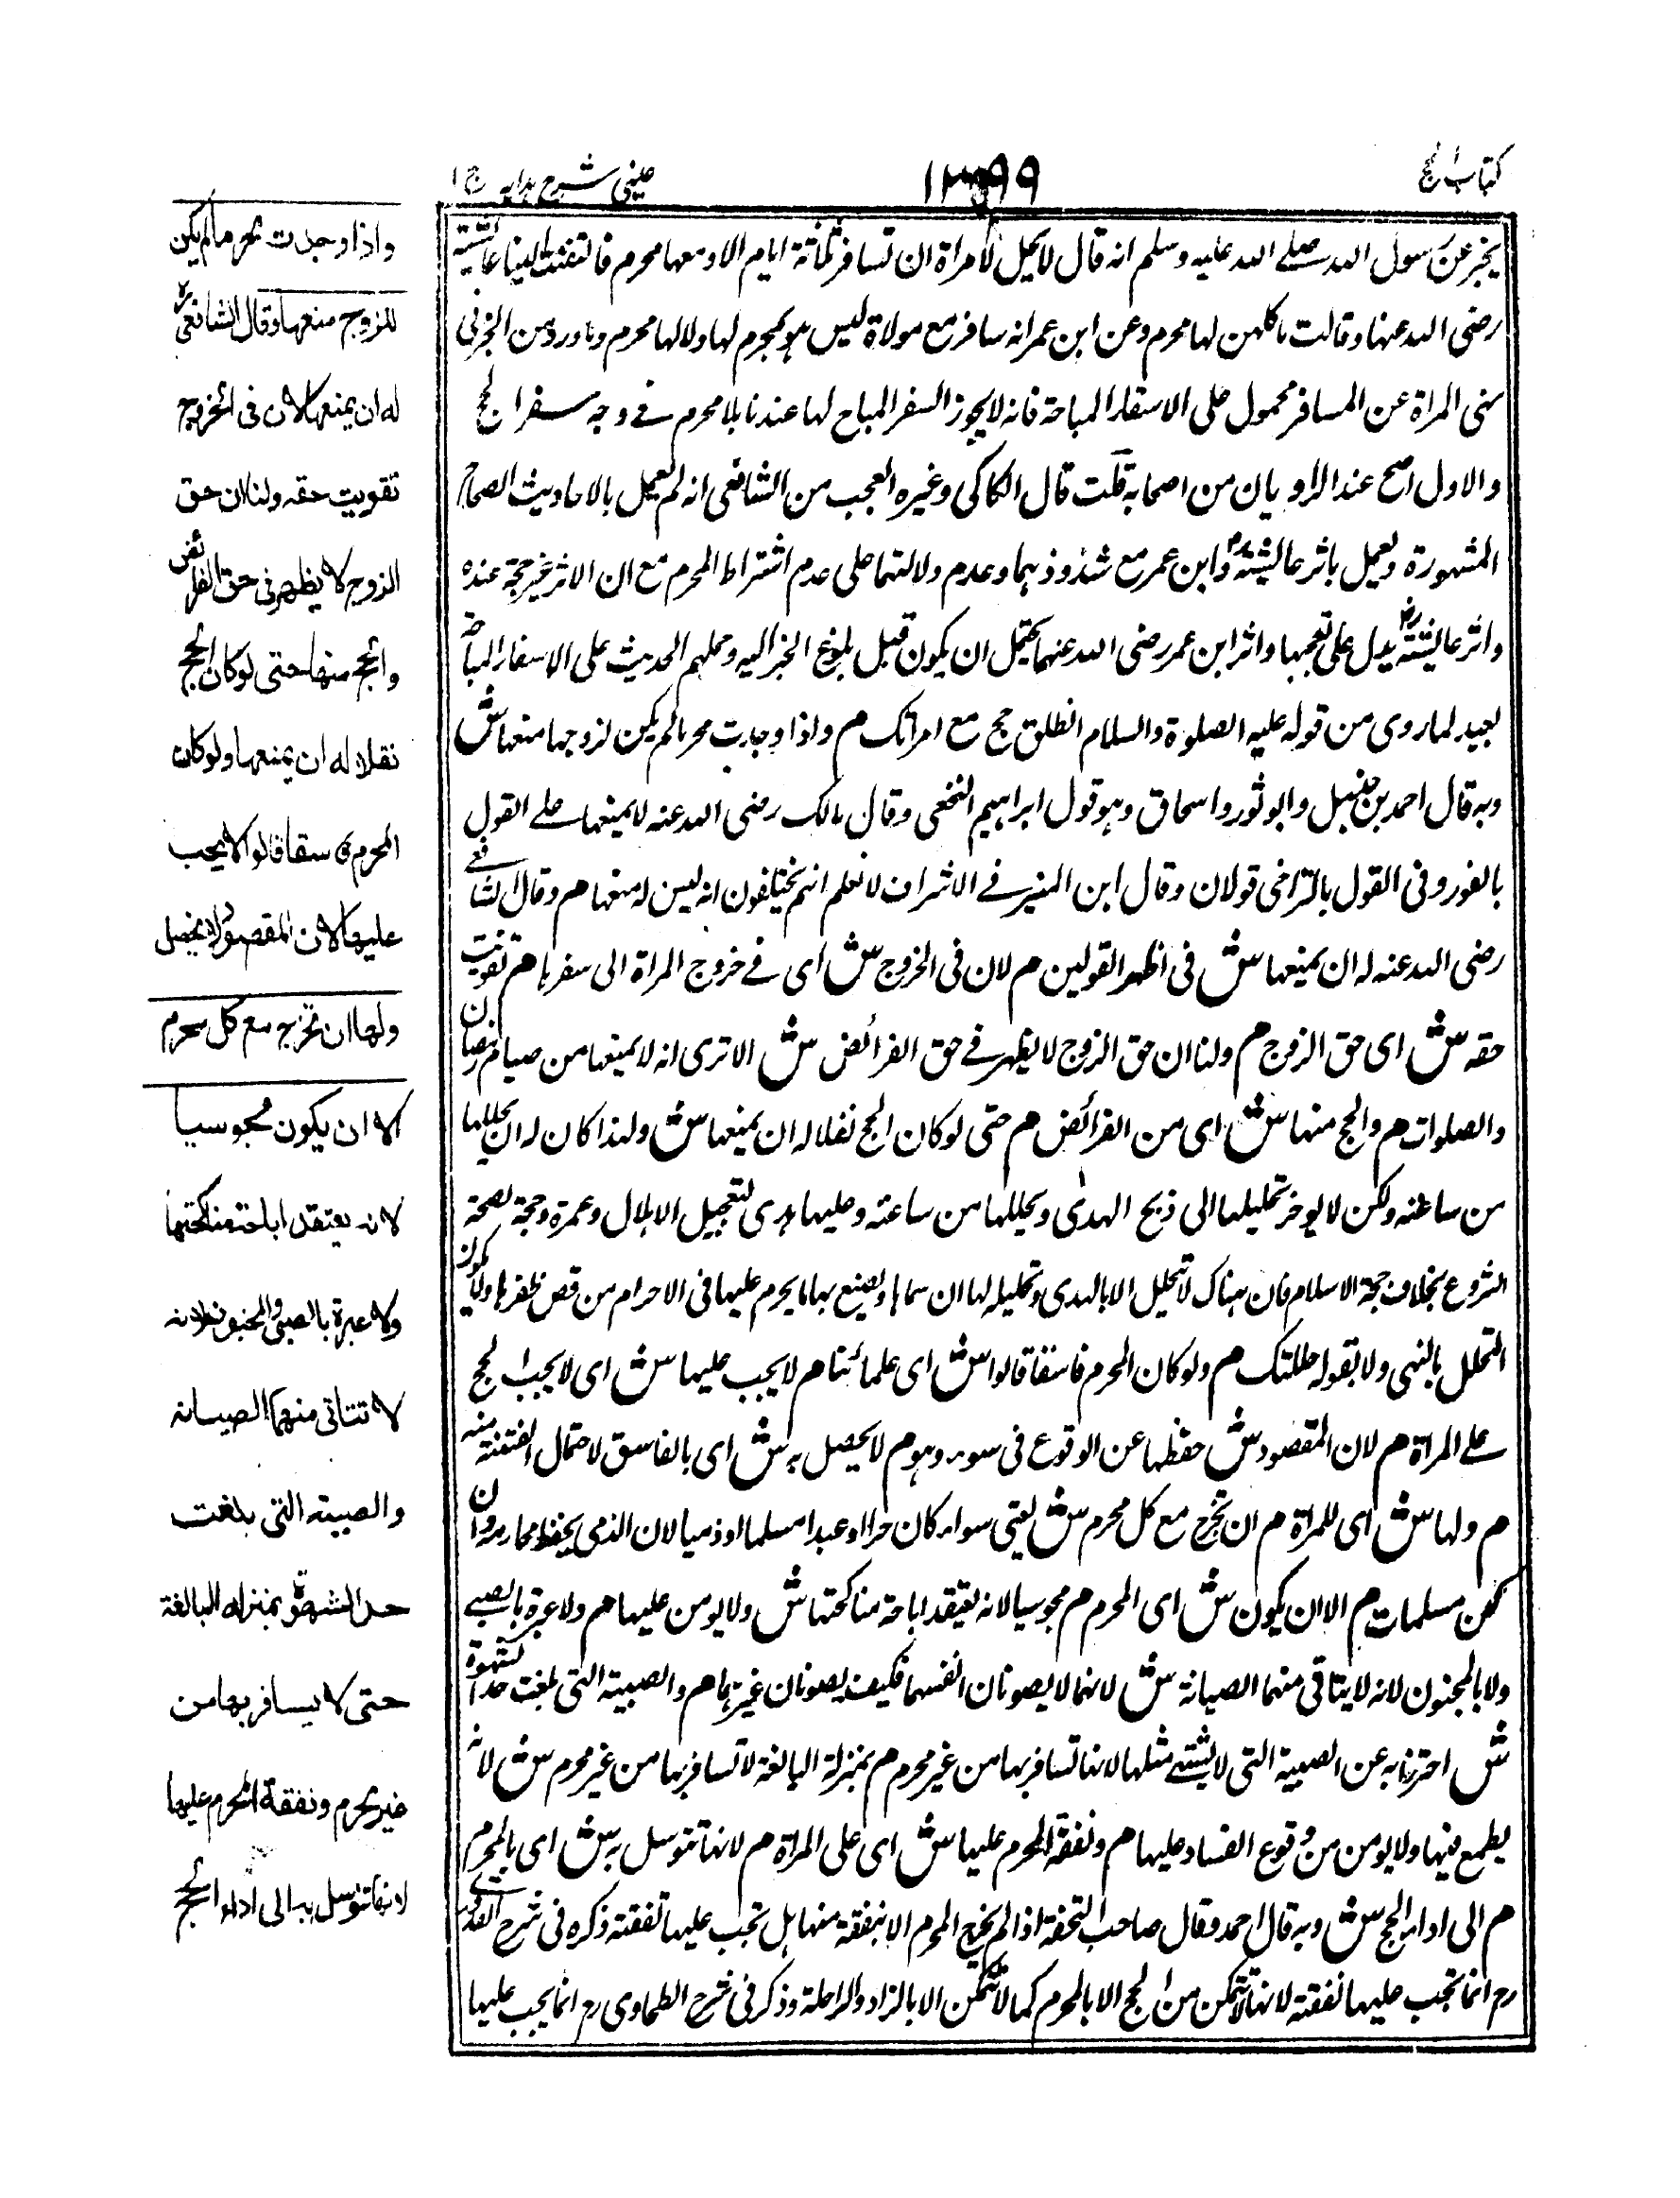 كتاب الحج
١٣٩٩
عینی شرح ہدایہ ج ١
يخبر عن رسول الله صلى الله عليه وسلم انه قال لا يحل لامراة ان تسافر ثلثة ايام الا ومعها محرم فالتفتت الينا عائشة
رضى الله عنها وقالت ما كلهن لها محرم وعن ابن عمر انه سافر مع مولاة ليس هو بمحرم لها ولا لها محرم وما ورد من الخبر فى
نهى المراة عن المسافر محمول على الاسفار المباحة فانه لا يجوز السفر المباح لها عندنا بلا محرم فے وجه سفر الحج
والاول اصح عند الرويان من اصحابه قلت قال الكاكى وغيره العجب من الشافعى انه لم يعمل بالاحاديث الصحاح
المشهورة ويعمل باثر عائشة رض وابن عمر مع شذوذهما وعدم دلالتهما على عدم اشتراط المحرم مع ان الاثر غير حجة عنده
واثر عائشة رض يدل على تعجبها واثر ابن عمر رضى الله عنهما يحتمل ان يكون قبل بلوغ الخبر اليه وحملهم الحديث على الاسفار المباحة
بعيد لما روى من قوله عليه الصلوة والسلام انطلق حج مع امراتك م واذا وجدت محرما لم يكن لزوجها منعها ش
وبه قال احمد بن حنبل وابو ثور واسحاق وهو قول ابراهيم النخعى وقال مالك رضى الله عنه لا يمنعها على القول
بالفور وفى القول بالتراخى قولان وقال ابن المنير فے الاشراف لا نعلم انهم يختلفون انه ليس له منعها م وقال الشافعے
رضى الله عنه له ان يمنعها ش فى اظهر القولين م لان فى الخروج ش اى فے خروج المراة الى سفرها م تفويت
حقه ش اى حق الزوج م ولنا ان حق الزوج لا يظهر فے حق الفرائض ش الا ترى انه لا يمنعها من صيام رمضان
والصلوات م والحج منها ش اى من الفرائض م حتى لو كان الحج نفلا له ان يمنعها ش ولهذا كان له ان يحللها
من ساعته ولكن لا يوخر تحليلها الى ذبح الهدى ويحللها من ساعته وعليها هدى لتعجيل الاهلال وعمرة وحجة لصحة
الشروع بخلاف حجة الاسلام فان هناك لا تحليل الا بالهدى وتحليله لها ان يصنع بها ما يحرم عليها فى الاحرام من قص ظفرها ولا يكون
التحلل بالنهى ولا بقوله حللتك م ولو كان المحرم فاسقا قالوا ش اى علمائنا م لا يجب عليها ش اى لا يجب الحج
علے المراة م لان المقصود ش حفظها عن الوقوع فى سوء وهو م لا يحصل به ش اى بالفاسق لاحتمال الفتنة منه
م ولها ش اى للمراة م ان تخرج مع كل محرم ش يعنى سواء كان حرا او عبدا مسلما او ذميا لان الذمى يحفظ محارمه وان
كن مسلمات م الا ان يكون ش اى المحرم م مجوسيا لانه يعتقد اباحة مناكحتها ش ولا يومن عليها م ولا عبرة بالصبے
ولا بالمجنون لانه لا يتاتى منهما الصيانة ش لانهما لا يصونان انفسهما فكيف يصونان غيرهما م والصبية التى بلغت حد الشهوة
ش احترز به عن الصبية التى لا يشتهے مثلها لانها تسافر بها من غير محرم م بمنزلة البالغة لا تسافر بها من غير محرم ش لانه
يطمع فيها ولا يومن من وقوع الفساد عليها م ونفقة المحرم عليها ش اى على المراة م لانها تتوسل به ش اى بالمحرم
م الى اداء الحج ش وبه قال احمد وقال صاحب التحفة اذا لم يخرج المحرم الا بنفقة منها هل تجب عليها نفقته ذكره فى شرح القدورے
رح انما تجب عليها نفقته لانها لا تتمكن من الحج الا بالمحرم كما لا تتمكن الا بالزاد والراحلة وذكر فى شرح الطحاوى رح انما يجب عليها
واذا وجدت محرما لم يكن
للزوج منعها وقال الشافعى رح
له ان يمنعها لان فى الخروج
تفويت حقه ولنا ان حق
الزوج لا يظهر فى حق الفرائض
والحج منها حتى لو كان الحج
نفلا له ان يمنعها ولو كان
المحرم فاسقا قالوا لا يجب
عليها لان المقصود لا يحصل
ولها ان تخرج مع كل محرم
الا ان يكون مجوسيا
لانه يعتقد اباحة مناكحتها
ولا عبرة بالصبى والمجنون لانه
لا تتاتى منهما الصيانة
والصبية التى بلغت
حد الشهوة بمنزلة البالغة
حتى لا يسافر بها من
غير محرم ونفقة المحرم عليها
لانها تتوسل به الى اداء الحج